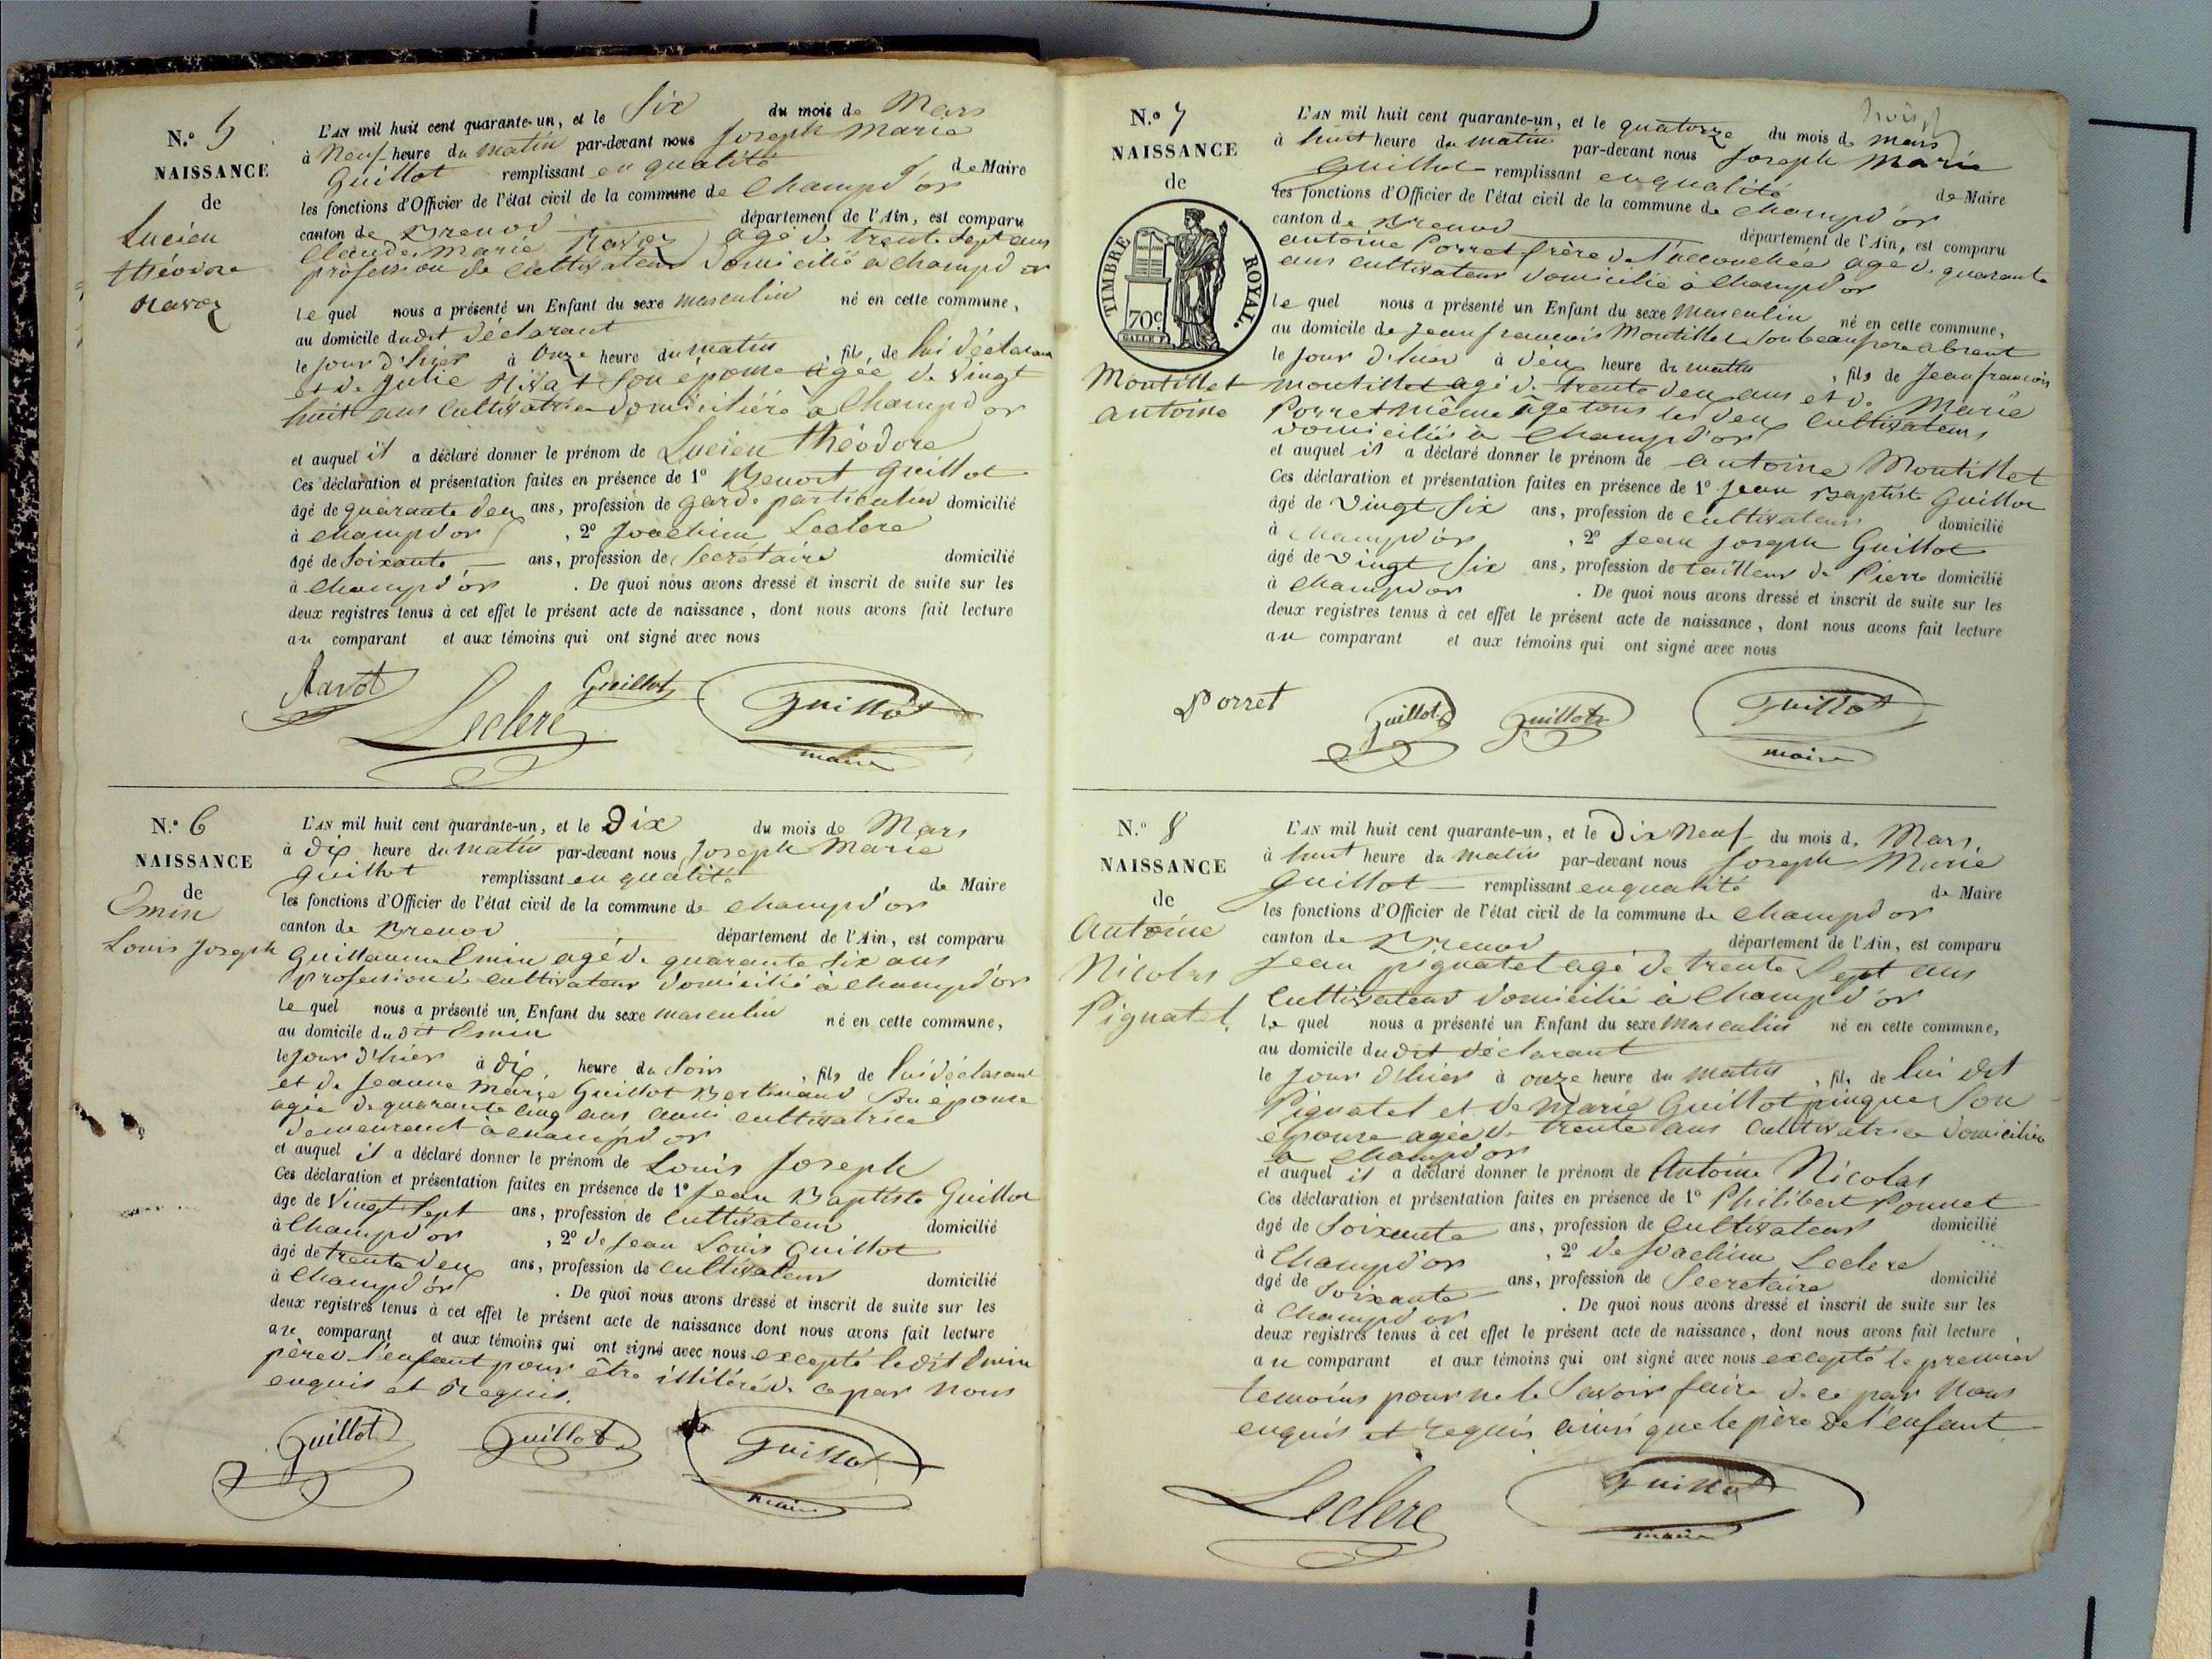 N.° 5
NAISSANCE
de
Lucien
théodore
Ravoz
L'AN mil huit cent quarante-un, et le Six du mois de Mars
à Neuf heure du matin par-devant nous Joseph Marie
Guillot remplissant en qualité de Maire
les fonctions d'Officier de l'état civil de la commune de Champd'or
canton de Brenod département de l'Ain, est comparu
Claude Marie Ravoz agé de trente Sept ans
profession de Cultivateur Domicilié à Champd'or
le quel nous a présenté un Enfant du sexe masculin né en cette commune,
au domicile dudit déclarant
le jour d'hier à Onze heure du matin , fils, de lui déclarant
et de Julie Nivat Son épouse agée de Vingt
huit ans Cultivatrice domiciliée à Champd'or
et auquel il a déclaré donner le prénom de Lucien théodore
Ces déclaration et présentation faites en présence de 1° Benoit Guillot
âgé de quarante deux ans, profession de garde particulier domicilié
à champd'or , 2° Joachim Leclerc
âgé de Soixante ans, profession de Secrétaire domicilié
à Champd'or . De quoi nous avons dressé et inscrit de suite sur les
deux registres tenus à cet effet le présent acte de naissance, dont nous avons fait lecture
au comparant et aux témoins qui ont signé avec nous
Ravot Leclerc Guillot Guillot
maire
N.° 6
NAISSANCE
de
Emin
Louis Joseph
L'AN mil huit cent quarante-un, et le Dix du mois de Mars
à dix heure du matin par-devant nous Joseph Marie
Guillot remplissant en qualité de Maire
les fonctions d'Officier de l'état civil de la commune de Champd'or
canton de Brenod département de l'Ain, est comparu
Guillaume Emin agé de quarante six ans
profession de cultivateur domicilié à champd'or
le quel nous a présenté un Enfant du sexe masculin né en cette commune,
au domicile dudit Emin
le jour d'hier à dix heure du Soir , fils de lui déclarant
et de Jeanne Marie Guillot Berthnand Son épouse
agée de quarante cinq ans aussi cultivatrice
demeurant à champd'or
et auquel il a déclaré donner le prénom de Louis Joseph
Ces déclaration et présentation faites en présence de 1° Jean Baptiste Guillot
âgé de Vingt Sept ans, profession de Cultivateur domicilié
à Champd'or , 2° de Jean Louis Guillot
âgé de trente deux ans, profession de Cultivateur domicilié
à Champd'or . De quoi nous avons dressé et inscrit de suite sur les
deux registres tenus à cet effet le présent acte de naissance dont nous avons fait lecture
au comparant et aux témoins qui ont signé avec nous excepté ledit Emin
père de l'enfant pour être illitéré de ce par Nous
enquis et Requis.
Guillot Guillot Guillot
maire
N.° 7
NAISSANCE
de
TIMBRE ROYAL.
70c
Montillet
antoine
L'AN mil huit cent quarante-un, et le quatorze du mois de mars
à huit heure du matin par-devant nous Joseph Marie
Guillot remplissant en qualité de Maire
les fonctions d'Officier de l'état civil de la commune de Champd'or
canton de Brenod département de l'Ain, est comparu
antoine Porret frère de l'accouchée agé de quarante
ans cultivateur domicilié à Champd'or
le quel nous a présenté un Enfant du sexe Masculin né en cette commune,
au domicile de Jean francois Montillet Son beaufrere absent
le Jour d'hier à deux heure du matin , fils de Jean francois
montillet agé de trente deux ans et de Marie
Porret même âge tous les deux Cultivateurs
domiciliés à Champd'or
et auquel il a déclaré donner le prénom de antoine Montillet
Ces déclaration et présentation faites en présence de 1° Jean Baptiste Guillot
âgé de Vingt Six ans, profession de Cultivateur domicilié
à Champd'or , 2° Jean Joseph Guillot
âgé de Vingt Six ans, profession de tailleur de Pierre domicilié
à Champd'or . De quoi nous avons dressé et inscrit de suite sur les
deux registres tenus à cet effet le présent acte de naissance, dont nous avons fait lecture
au comparant et aux témoins qui ont signé avec nous
Porret Guillot Guillot Guillot
maire
N.° 8
NAISSANCE
de
Antoine
Nicolas
Pignatel
L'AN mil huit cent quarante-un, et le Dix Neuf du mois de Mars
à huit heure du matin par-devant nous Joseph Marie
Guillot remplissant en qualité de Maire
les fonctions d'Officier de l'état civil de la commune de Champd'or
canton de Brenod département de l'Ain, est comparu
Jean pignatel agé de trente Sept ans
Cultivateur domicilié à Champd'or
le quel nous a présenté un Enfant du sexe Masculin né en cette commune,
au domicile dudit déclarant
le Jour d'hier à onze heure du matin , fils de lui dit
Pignatel et de Marie Guillot pingue Son
épouse agée de trente ans Cultivatrice domiciliée
à Champd'or
et auquel il a déclaré donner le prénom de Antoine Nicolas
Ces déclaration et présentation faites en présence de 1° Philibert Ponnet
âgé de Soixante ans, profession de Cultivateur domicilié
à Champd'or , 2° de Joachim Leclerc
âgé de Soixante ans, profession de Secretaire domicilié
à Champd'or . De quoi nous avons dressé et inscrit de suite sur les
deux registres tenus à cet effet le présent acte de naissance, dont nous avons fait lecture
au comparant et aux témoins qui ont signé avec nous excepté le premier
temoins pour ne le Savoir faire de ce par Nous
enquis et requis ainsi que le père de l'enfant
Leclerc Guillot
maire